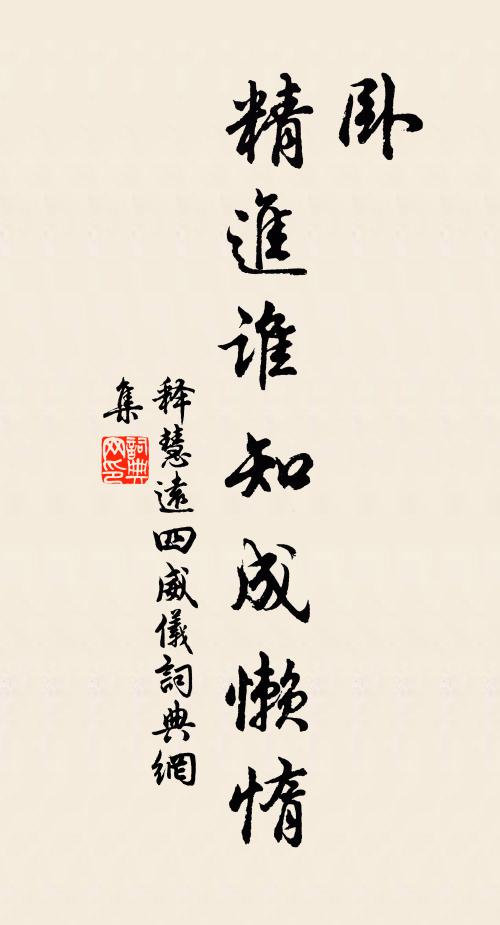 卧
精進誰知成懶惰
释慧遠四威儀詞典網
集
詞典
网印